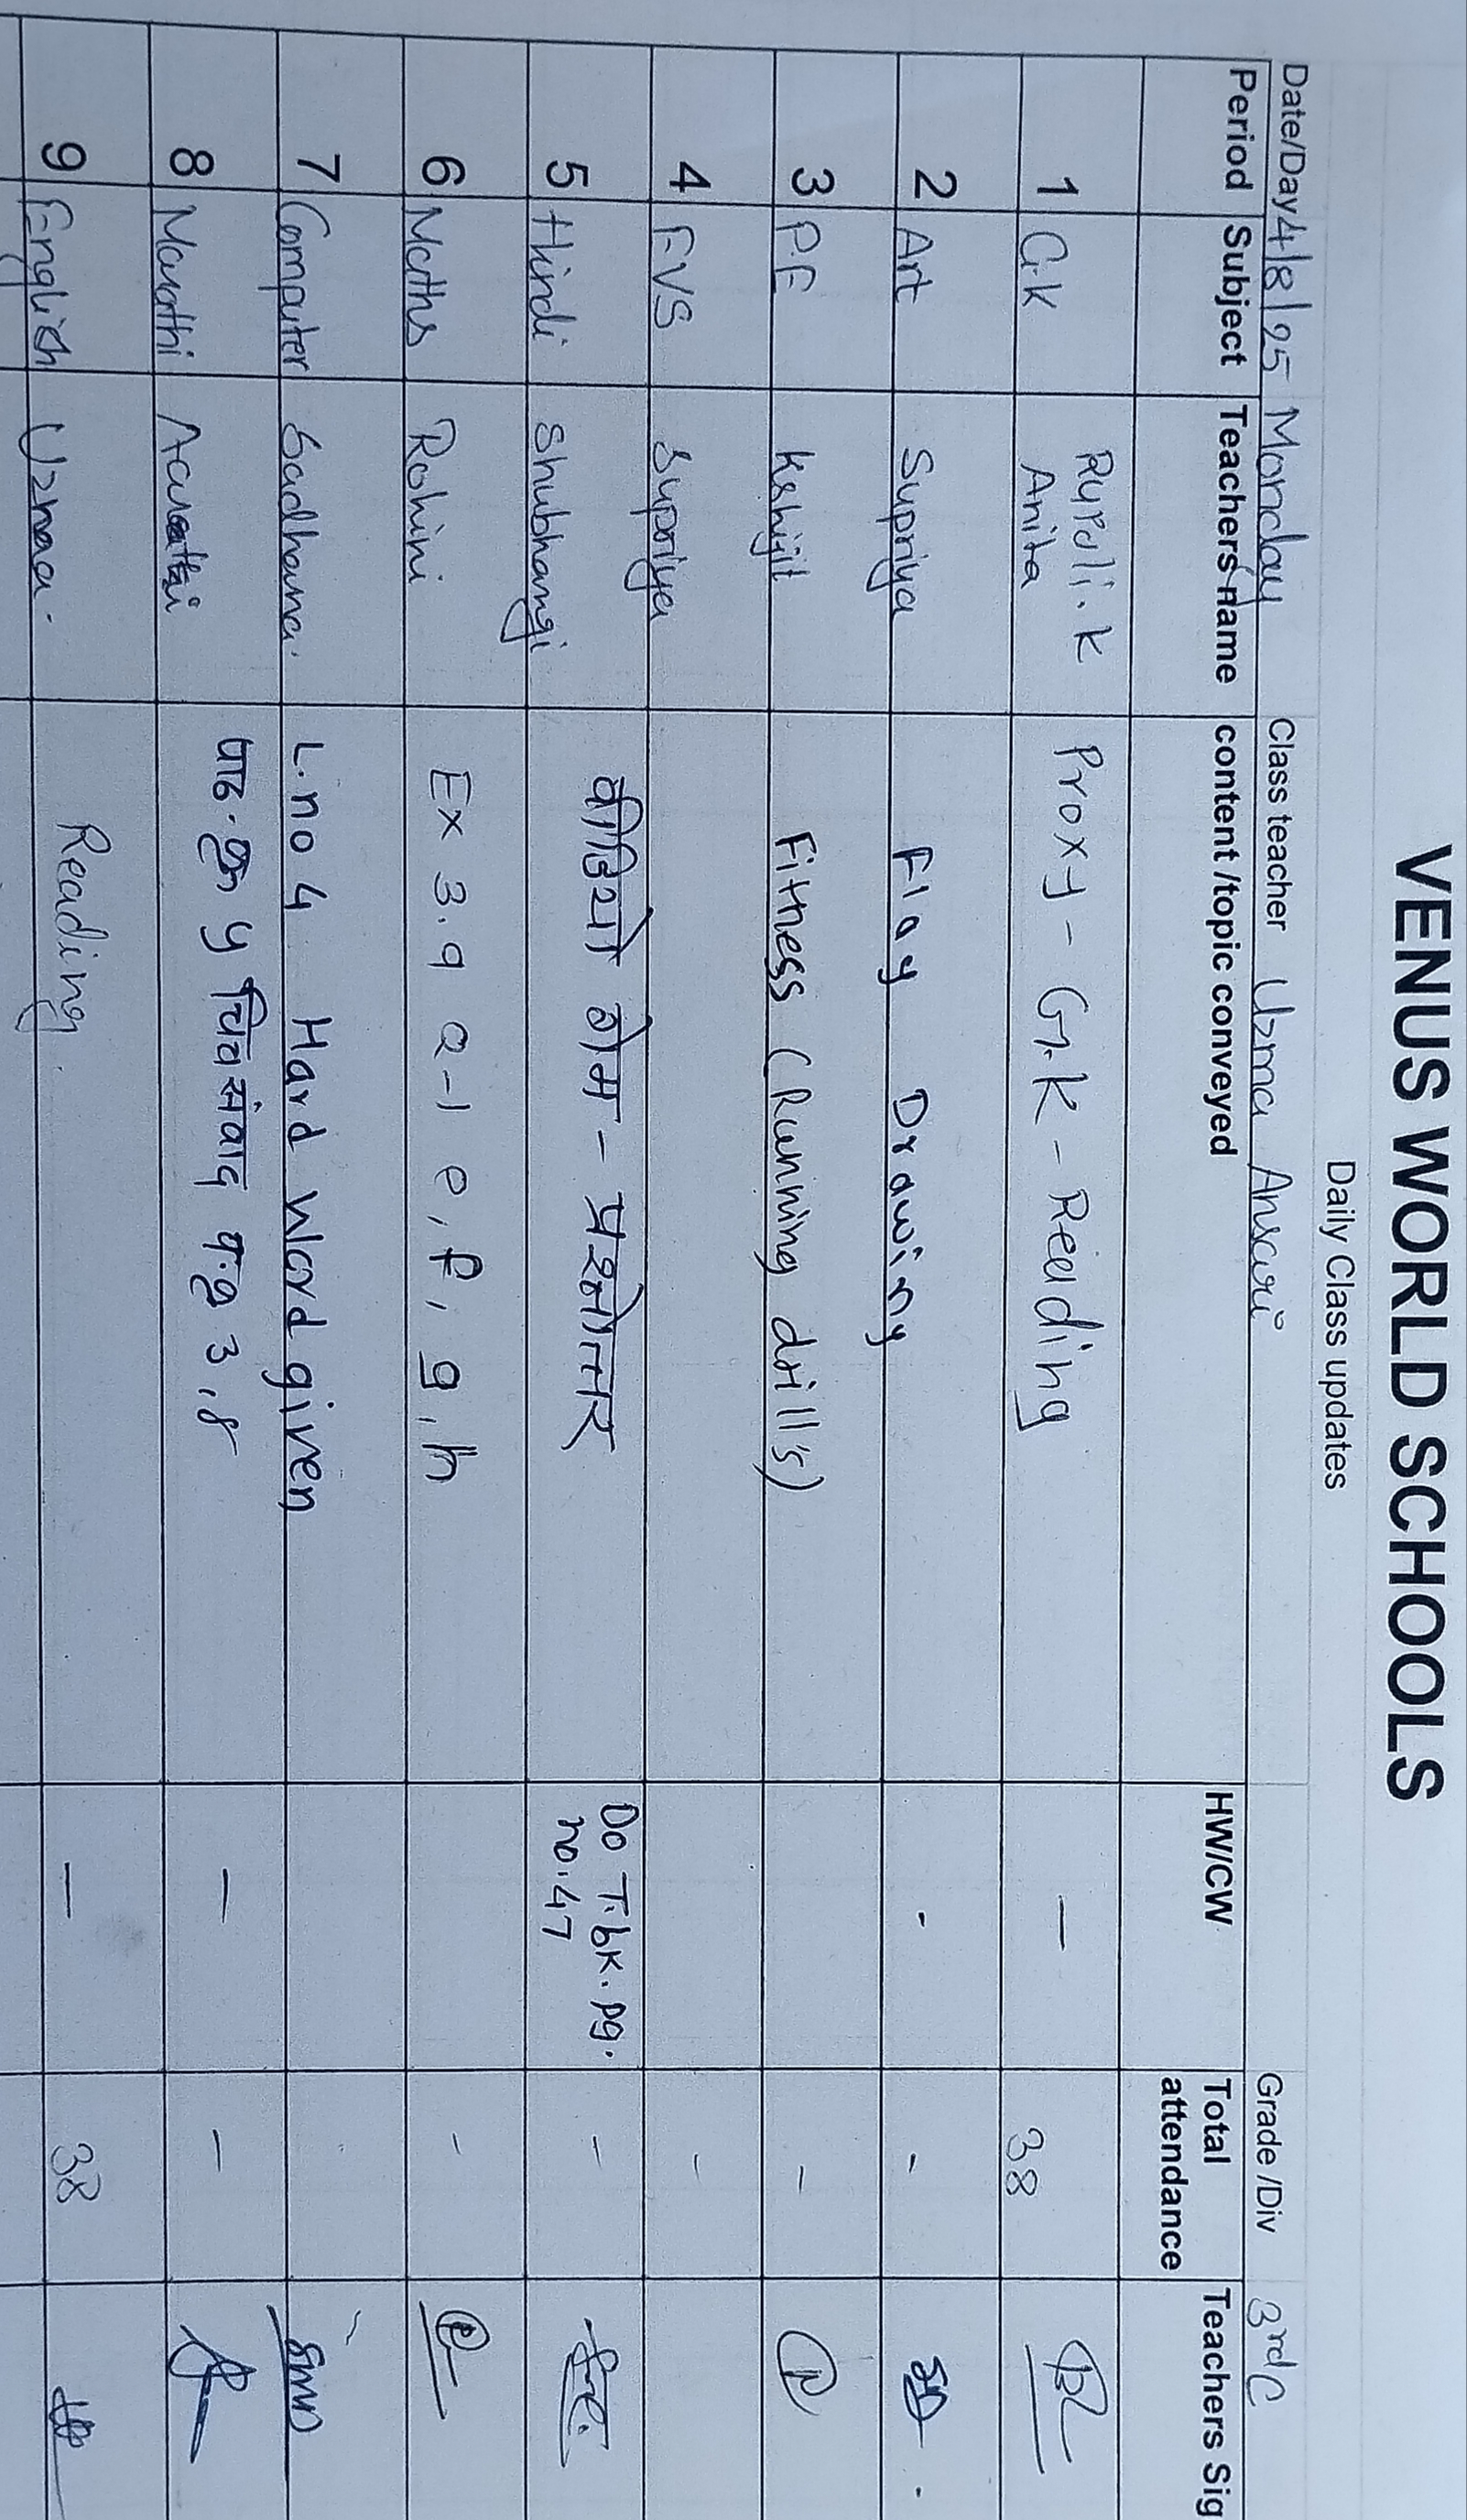 VENUS WORLD SCHOOLS
Daily Class updates
Date/Day 4/8/25 Monday Class teacher Uzma Ansari Grade /Div 3rd C
Period Subject Teachers name content /topic conveyed HW/CW Total attendance Teachers Sig
1 G.K Rupali.K Anita Proxy - G.K - Reading — 38
2 Art Supriya Flag Drawing - -
3 P.E Kshijit Fitness (Running drill's) -
4 EVS Supriya -
5 Hindi Shubhangi वीडियो गेम - प्रश्नोत्तर Do T.bk. pg. no. 47 -
6 Maths Rohini Ex 3.9 Q-1 e, f, g, h -
7 Computer Sadhana. L.no 4 Hard Word given
8 Marathi Aarati पाठ. क्र ५ चित्रसंवाद व.बु ३,४ — —
9 English Uzma. Reading. — 38